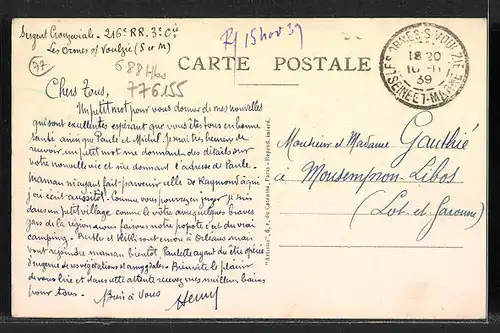 Sergent Crouzeviale - 216e R.R. 3e Cie
Les Ormes s/ Voulzie (S et M)
77
R/ 15 nov 39
688 Hbs
776155
CARTE POSTALE
LES ORMES-S-VOULZIE
18 20
10-11
39
(SEINE ET-MARNE)
Chers Tous,
Un petit mot pour vous donner de mes nouvelles
qui sont excellentes espérant que vous êtes tous en bonne
santé ainsi que Paule et Michel. Je serais heureux de
recevoir un petit mot me donnant des détails sur
votre nouvelle vie et me donnant l'adresse de Paule.
Maman n'ayant fait parvenir celle de Raymond à qui
j'ai écrit aussitôt. Comme vous pouvez en juger je suis
dans un petit village comme le votre avec quelques braves
gars de la région nous faisons notre popote c'est du vrai
camping. et sont envoi à Orléans mais
vont rejoindre maman bientôt. Paulette ayant du être opérée
d'urgence de ses végétations et amygdales. Bientôt le plaisir
de vous lire et dans cette attente recevez mes meilleurs baisers
pour tous. Bien à Vous
Henry
Monsieur et Madame Gauthié
à Monsempron-Libos
(Lot et Garonne)